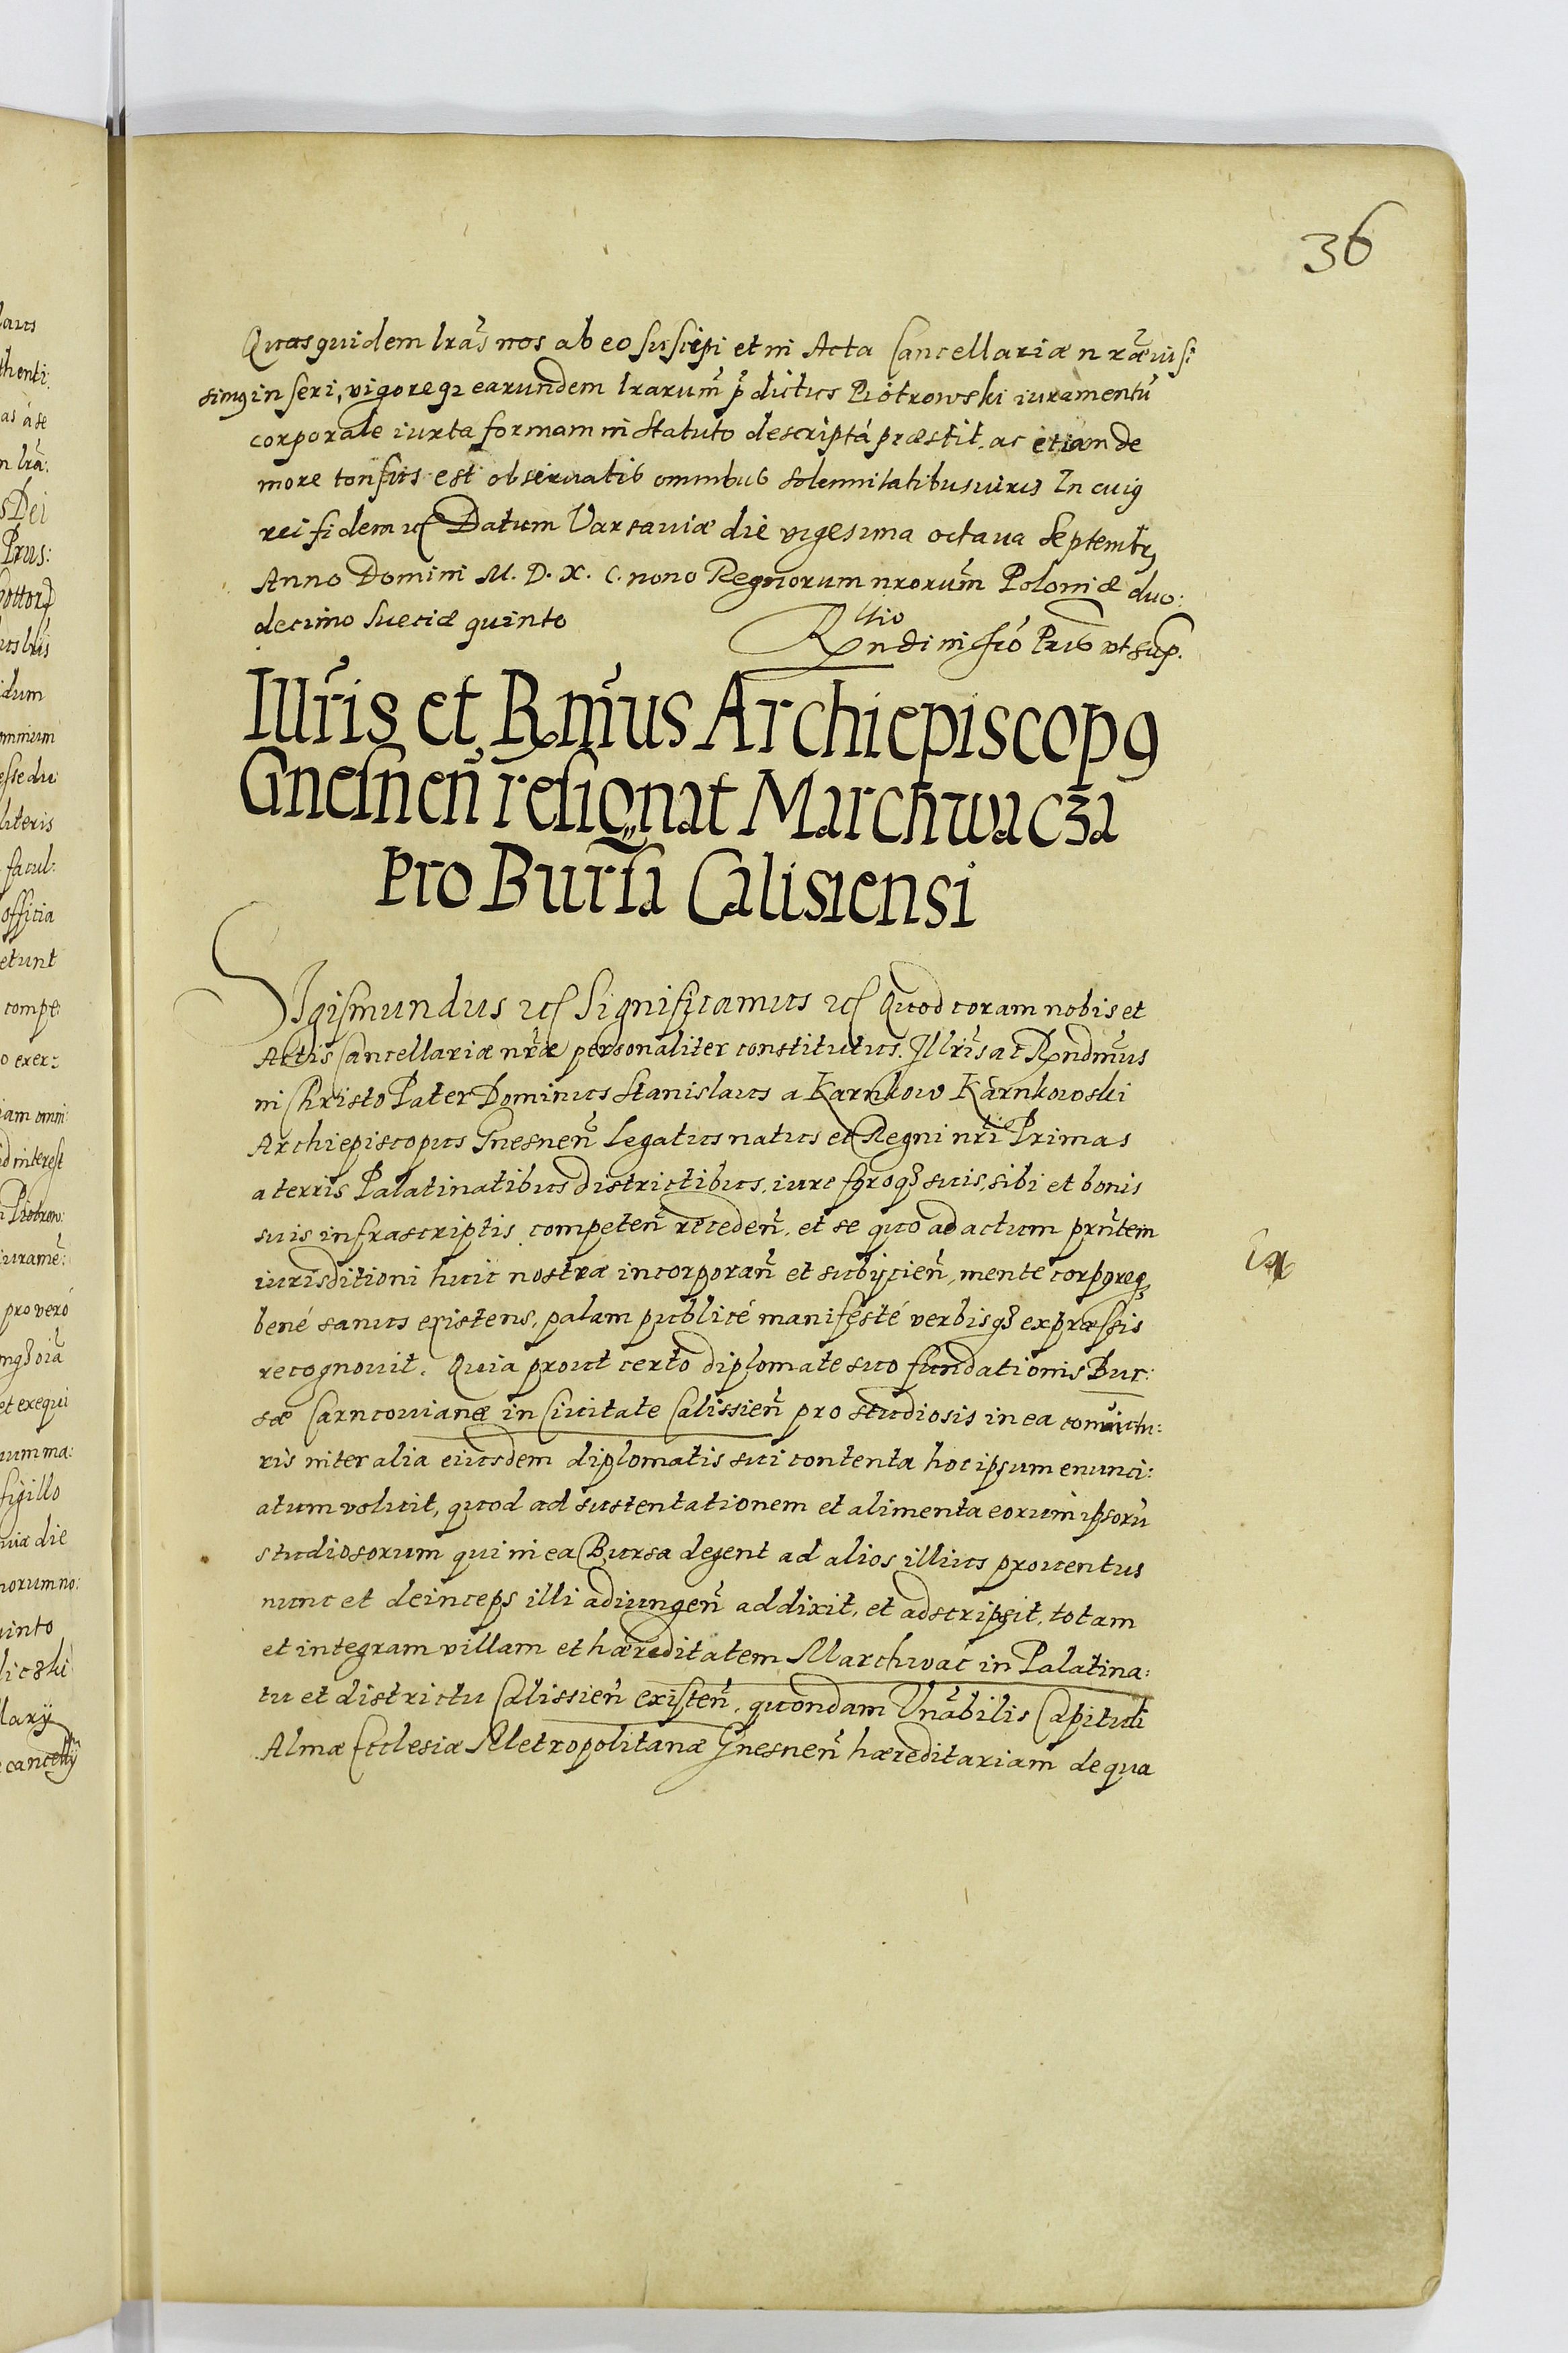 36
Quas quidem lrãs nos ab eo suscipi et in Acta Cancellariæ nrãe iusˢⁱ
simꝯ inseri, vigoreqꝫ earundem lrarum̃ p̃dictus Piotrowski iuramentũ
corporale iuxta formam in statuto descriptá præstit. ac etiam de
more tonsus est obseruatis omnibus solemnitatibus iuris In cuiꝯ
rei fidem ꝛcſ Datum Varsauiæ die vigesima octaua Septembrꝭ
Anno Domini M. D. X. C. nono Regnorum nrorum̃ Poloniæ duo:
decimo Sueciæ quinto
Rltio Rndi in Chró Pris vt sup.
Illr̃is et Rmũs Archiepiscopꝯ
Gnesneñ resignat Marchwacza
Pro Bursa Calisiensi
SIgismundus ꝛcſ Significamus ꝛcſ Quod coram nobis et
Actis Cancellariæ nrãe personaliter constitutus. Illr̃is ac Rndmũs
in Christo Pater Dominus Stanislaus a Karnkow Karnkowski
Archiepiscopus Gnesneñ Legatus natus et Regni nrĩ Primas
a terris Palatinatibus districtibus, iure foroqꝫ suis, sibi et bonis
suis infrascriptis competeñ recedeñ, et se quo ad actum prñtem
iurisditioni huic nostræ incorporañ et subijcieñ, mente corporeqꝫ
bené sanus existens, palam publicé manifesté verbisqꝫ expræssis
recognouit. Quia prout certo diplomate suo fundationis Bur:
sæ Carncouianæ in Ciuitate Calissieñ pro studiosis in ea conuictu:
ris inter alia eiusdem diplomatis sui contenta hoc ipsum enunci:
atum voluit, quod ad sustentationem et alimenta eorum ipsorũ
studiosorum qui in ea Bursa degent ad alios illius prouentus
nunc et deinceps illi adiungeñ addixit, et adscripsit, totam
et integram villam et hæreditatem Marchwac in Palatina:
tu et districtu Calissieñ existeñ, quondam Vnãbilis Capituli
Almæ Ecclesiæ Metropolitanæ Gnesneñ hæreditariam de qua